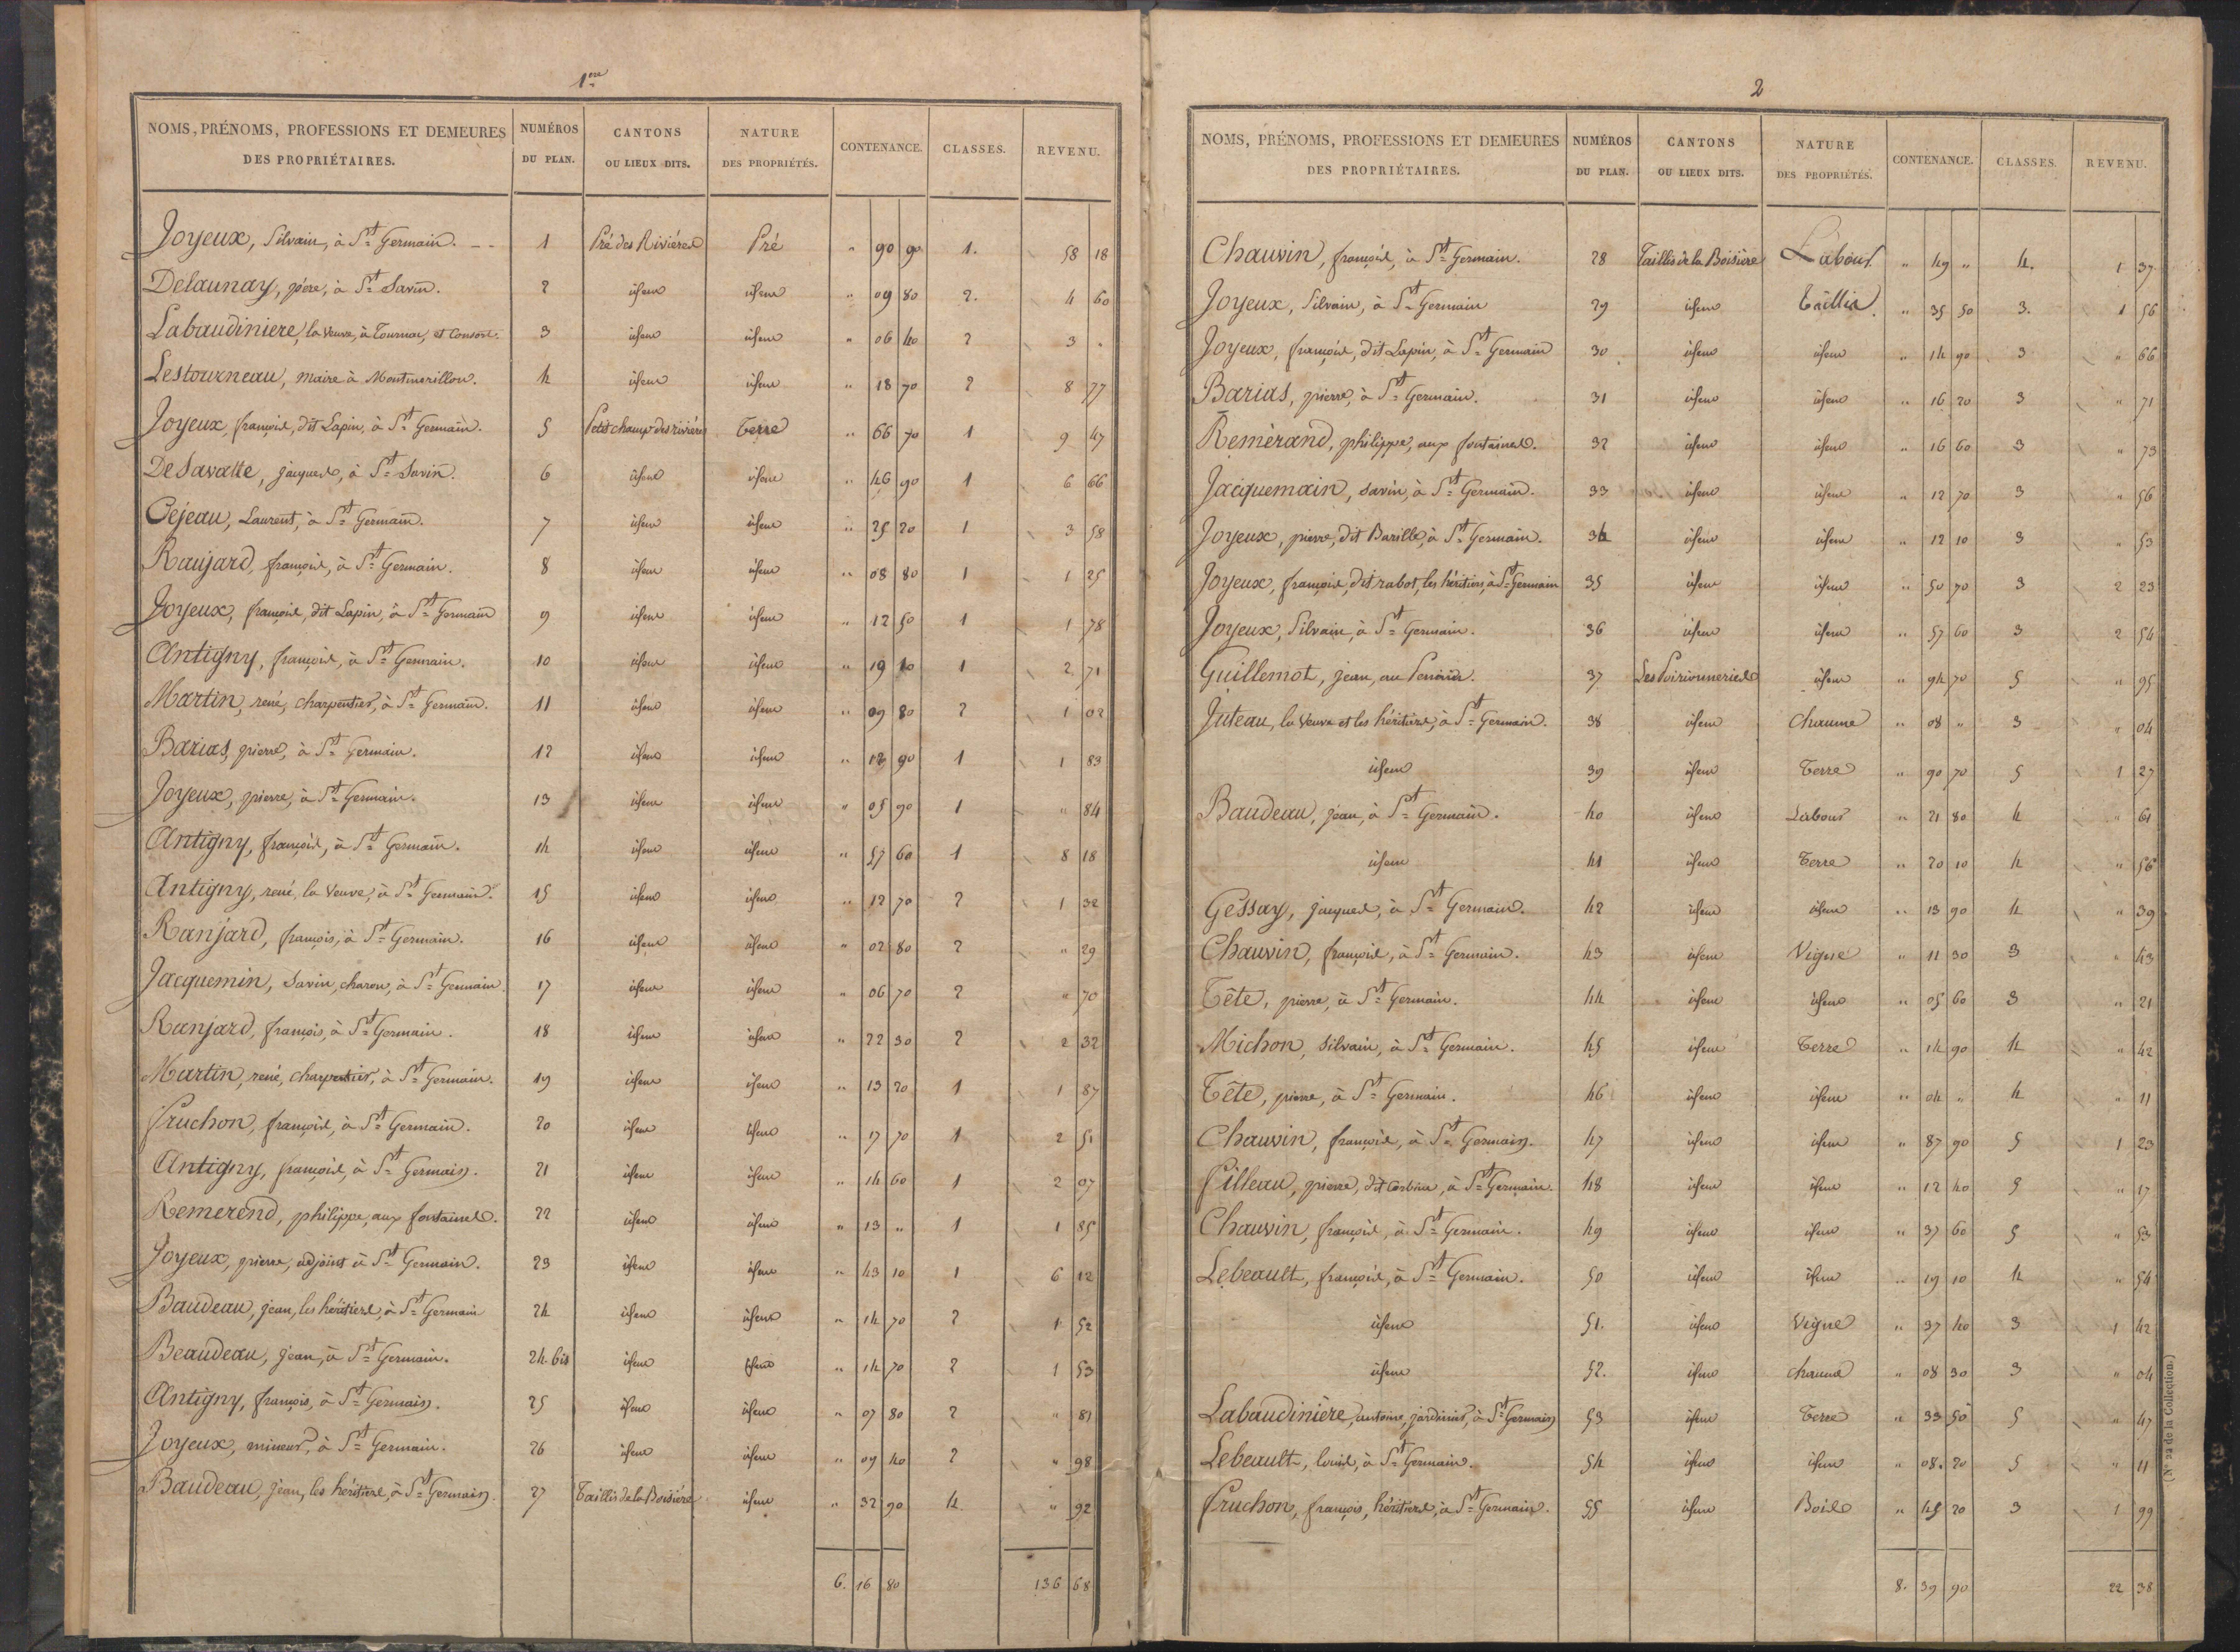 1ere
NOMS, PRÉNOMS, PROFESSIONS ET DEMEURES DES PROPRIÉTAIRES. NUMÉROS DU PLAN. CANTONS OU LIEUX DITS. NATURE DES PROPRIÉTÉS. CONTENANCE. CLASSES. REVENU.
Joyeux, Silvain, à St Germain. 1 Pré des Rivières Pré " 90 90 1. 58 18
Delaunay, père, à St Savin. 2 idem idem " 09 80 2. 4 60
Labaudiniere, la Veuve, à Tournon, et Consort. 3 idem idem " 06 40 2 3 "
Lestourneau, maire à Montmorillon. 4 idem idem " 18 70 2 8 77
Joyeux, françois, dit Lapin, à St Germain. 5 Petit champ des rivières Terre " 66 70 1 9 47
DeSavatte, jacques, à St Savin. 6 idem idem " 46 90 1 6 66
Cejeau, Laurent, à St Germain. 7 idem idem " 25 20 1 3 58
Raujard, françois, à St Germain. 8 idem idem " 08 80 1 1 25
Joyeux, françois, dit Lapin, à St Germain 9 idem idem " 12 50 1 1 78
Antigny, françois, à St Germain. 10 idem idem " 19 10 1 2 71
Martin, rené, charpentier, à St Germain. 11 idem idem " 09 80 2 1 02
Barias, pierre, à St Germain. 12 idem idem " 12 90 1 1 83
Joyeux, pierre, à St Germain. 13 idem idem " 05 90 1 " 84
Antigny, françois, à St Germain. 14 idem idem " 57 60 1 8 18
Antigny, rené, la Veuve, à St Germain. 15 idem idem " 12 70 2 1 32
Ranjard, françois, à St Germain. 16 idem idem " 02 80 2 " 29
Jacquemin, Savin, charon, à St Germain. 17 idem idem " 06 70 2 " 70
Ranjard, françois, à St Germain. 18 idem idem " 22 30 2 2 32
Martin, rené, charpentier, à St Germain. 19 idem idem " 13 20 1 1 87
Fruchon, françois, à St Germain. 20 idem idem " 17 70 1 2 51
Antigny, françois, à St Germain. 21 idem idem " 14 60 1 2 07
Remerend, philippe, aux fontaines. 22 idem idem " 13 " 1 1 85
Joyeux, pierre, adjoint à St Germain. 23 idem idem " 43 10 1 6 12
Baudeau, jean, les héritiers, à St Germain 24 idem idem " 14 70 2 1 52
Beaudeau, jean, à St Germain. 24 bis idem idem " 14 70 2 1 53
Antigny, françois, à St Germain. 25 idem idem " 07 80 2 " 81
Joyeux, mineur, à St Germain. 26 idem idem " 09 40 2 " 98
Baudeau, jean, les héritiers, à St Germain. 27 Taillis de la Boisière idem " 32 90 4 " 92
6. 16 80 136 68
2
NOMS, PRÉNOMS, PROFESSIONS ET DEMEURES DES PROPRIÉTAIRES. NUMÉROS DU PLAN. CANTONS OU LIEUX DITS. NATURE DES PROPRIÉTÉS. CONTENANCE. CLASSES. REVENU.
Chauvin, françois, à St Germain. 28 Taillis de la Boisière Labour " 49 " 4. 1 37
Joyeux, Silvain, à St Germain 29 idem Taillis " 35 50 3. 1 56
Joyeux, françois, dit Lapin, à St Germain 30 idem idem " 14 90 3 " 66
Barias, pierre, à St Germain. 31 idem idem " 16 20 3 " 71
Remèrand, philippe, aux fontaines. 32 idem idem " 16 60 3 " 73
Jacquemain, savin, à St Germain. 33 idem idem " 12 70 3 " 56
Joyeux, pierre, dit Barille, à St Germain. 34 idem idem " 12 10 3 " 53
Joyeux, françois, dit rabot, les héritiers, à St Germain 35 idem idem " 50 70 3 2 23
Joyeux, Silvain, à St Germain. 36 idem idem " 57 60 3 2 54
Guillemot, jean, au 37 Les Poirionneries idem " 94 70 5 " 95
Juteau, la Veuve et les héritiers, à St Germain. 38 idem chaume " 08 " 3 " 04
idem 39 idem Terre " 90 70 5 1 27
Baudeau, jean, à St Germain. 40 idem Labour " 21 80 4 " 61
idem 41 idem Terre " 20 10 4 " 56
Gessay, jacques, à St Germain. 42 idem idem " 13 90 4 " 39
Chauvin, françois, à St Germain. 43 idem Vigne " 11 30 3 " 43
Tête, pierre, à St Germain. 44 idem idem " 05 60 3 " 21
Michon, Silvain, à St Germain. 45 idem Terre " 14 90 4 " 42
Tête, pierre, à St Germain. 46 idem idem " 04 " 4 " 11
Chauvin, françois, à St Germain. 47 idem idem " 87 90 5 1 23
Pilleau, pierre, dit Corbin, à St Germain. 48 idem idem " 12 40 5 " 17
Chauvin, françois, à St Germain. 49 idem idem " 37 60 5 " 53
Lebeault, françois, à St Germain. 50 idem idem " 19 10 4 " 54
idem 51. idem Vigne " 37 40 3 1 42
idem 52. idem chaume " 08 30 3 " 04
Labaudinière, antoine, jardinier, à St Germain 53 idem Terre " 33 50 5 " 47
Lebeault, louis, à St Germain. 54 idem idem " 08. 20 5 " 11
Fruchon, françois, héritiers, à St Germain. 55 idem Bois " 45 20 3 1 99
8. 39 90 22 38
(N° 22 de la Collection.)